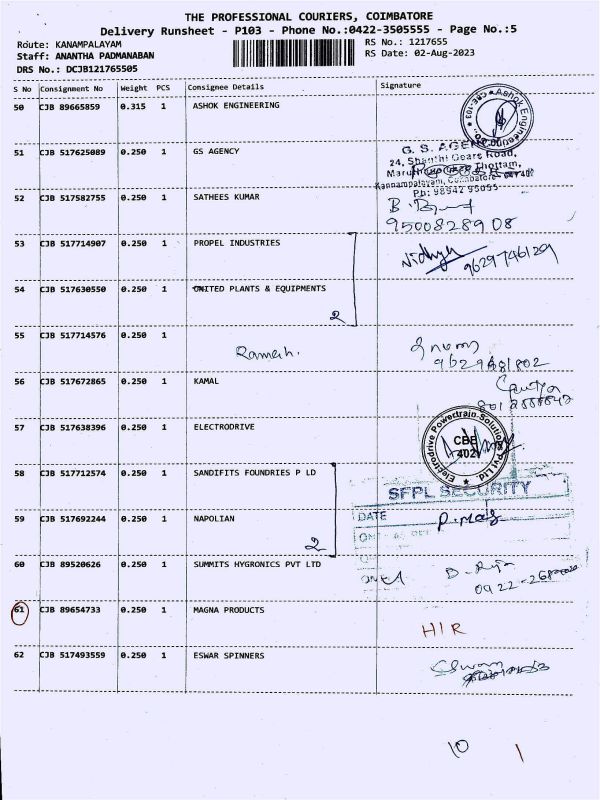 THE PROFESSIONAL COURIERS, COIMBATORE
Delivery Runsheet - P103 - Phone No.:0422-3505555 - Page No.:5
Route: KANAMPALAYAM
RS No.: 1217655
Staff: ANANTHA PADMANABAN
RS Date: 02-Aug-2023
DRS No.: DCJB121765505
S No Consignment No Weight PCS Consignee Details Signature
50 CJB 89665859 0.315 1 ASHOK ENGINEERING
Ashok Engineering Co. CBE-103
51 CJB 517625089 0.250 1 GS AGENCY
G. S. AGENCY
24, Shanthi Gears Road,
Thottam,
Kannampalayam, Coimbatore
Ph: 98942 95055
52 CJB 517582755 0.250 1 SATHEES KUMAR
B.
9500828908
53 CJB 517714907 0.250 1 PROPEL INDUSTRIES
9629746129
54 CJB 517630550 0.250 1 UNITED PLANTS & EQUIPMENTS
2
55 CJB 517714576 0.250 1
Ramesh.
56 CJB 517672865 0.250 1 KAMAL
57 CJB 517638396 0.250 1 ELECTRODRIVE
Electrodrive Powertrain Solutions Pvt Ltd
CBE
402
58 CJB 517712574 0.250 1 SANDIFITS FOUNDRIES P LD
SFPL SECURITY
59 CJB 517692244 0.250 1 NAPOLIAN
2
DATE
60 CJB 89520626 0.250 1 SUMMITS HYGRONICS PVT LTD
61 CJB 89654733 0.250 1 MAGNA PRODUCTS
HIR
62 CJB 517493559 0.250 1 ESWAR SPINNERS
10 1